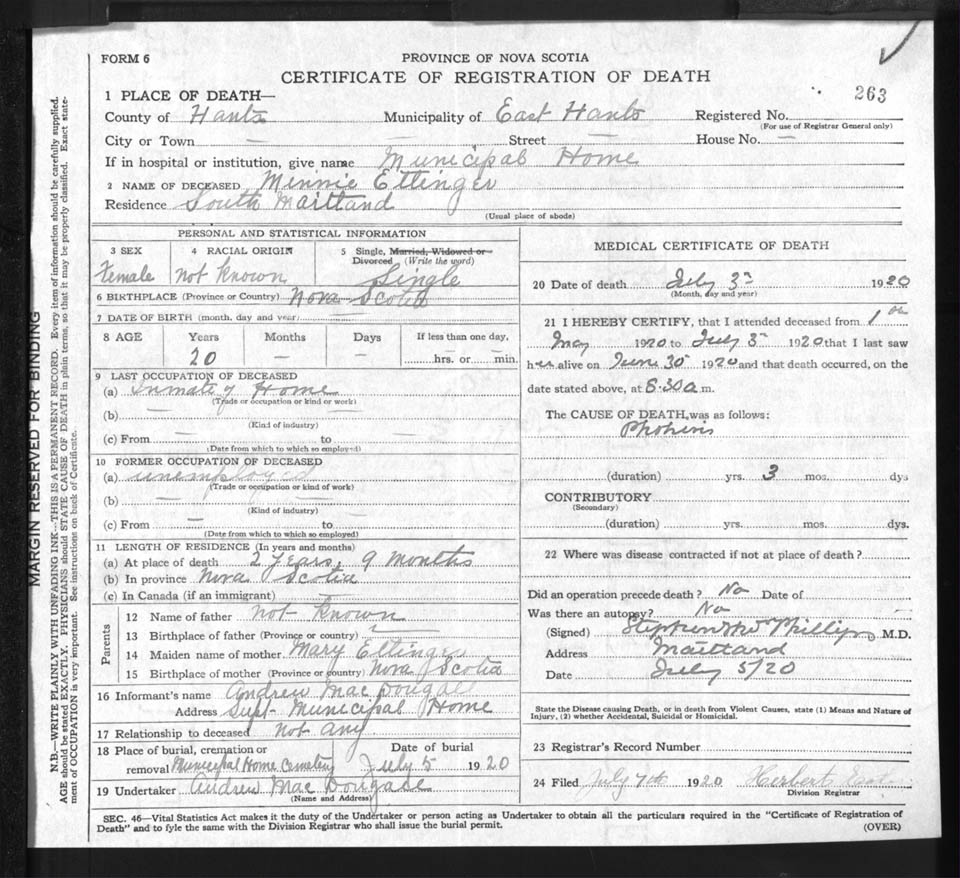 FORM 6
PROVINCE OF NOVA SCOTIA
CERTIFICATE OF REGISTRATION OF DEATH
263
1 PLACE OF DEATH—
County of Hants Municipality of East Hants Registered No.
(For use of Registrar General only)
City or Town — Street — House No. —
If in hospital or institution, give name Municipal Home
2 NAME OF DECEASED Minnie Ettinger
Residence South Maitland
(Usual place of abode)
PERSONAL AND STATISTICAL INFORMATION
3 SEX 4 RACIAL ORIGIN 5 Single, Married, Widowed or
Divorced (Write the word)
Female Not Known Single
6 BIRTHPLACE (Province or Country) Nova Scotia
7 DATE OF BIRTH (month, day and year) —
8 AGE Years Months Days If less than one day,
20 — — — hrs. or — min.
9 LAST OCCUPATION OF DECEASED
(a) Inmate of Home
(Trade or occupation or kind or work)
(b) —
(Kind of industry)
(c) From — to —
(Date from which to which so employed)
10 FORMER OCCUPATION OF DECEASED
(a)
(Trade or occupation or kind of work)
(b) —
(Kind of industry)
(c) From — to
(Date from which to which so employed)
11 LENGTH OF RESIDENCE (In years and months)
(a) At place of death 2 Years, 9 months
(b) In province Nova Scotia
(c) In Canada (if an immigrant) —
Parents
12 Name of father Not Known
13 Birthplace of father (Province or country) —
14 Maiden name of mother Mary Ettinger
15 Birthplace of mother (Province or country) Nova Scotia
16 Informant's name Andrew MacDougall
Address Supt. Municipal Home
17 Relationship to deceased Not any
18 Place of burial, cremation or Date of burial
removal Municipal Home Cemetery July 5 1920
19 Undertaker Andrew MacDougall
(Name and Address)
MEDICAL CERTIFICATE OF DEATH
20 Date of death July 3rd 1920
(Month, day and year)
21 I HEREBY CERTIFY, that I attended deceased from 1st
May 1920 to July 3rd 1920 that I last saw
her alive on June 30 1920 and that death occurred, on the
date stated above, at 8.30 a m.
The CAUSE OF DEATH, was as follows:
Phthisis
(duration) yrs. 3 mos. dys
CONTRIBUTORY
(Secondary)
(duration) yrs. mos. dys.
22 Where was disease contracted if not at place of death?
Did an operation precede death? No Date of
Was there an autopsy? No
(Signed) Phillips M.D.
Address Maitland
Date July 5/20
State the Disease causing Death, or in death from Violent Causes, state (1) Means and Nature of
Injury, (2) whether Accidental, Suicidal or Homicidal.
23 Registrar's Record Number
24 Filed July 7th 1920 Herbert
Division Registrar
SEC. 46—Vital Statistics Act makes it the duty of the Undertaker or person acting as Undertaker to obtain all the particulars required in the "Certificate of Registration of
Death" and to fyle the same with the Division Registrar who shall issue the burial permit.
(OVER)
MARGIN RESERVED FOR BINDING
N.B.—WRITE PLAINLY WITH UNFADING INK—THIS IS A PERMANENT RECORD. Every item of information should be carefully supplied.
AGE should be stated EXACTLY. PHYSICIANS should STATE CAUSE OF DEATH in plain terms, so that it may be properly classified. Exact state-
ment of OCCUPATION is very important. See instructions on back of Certificate.